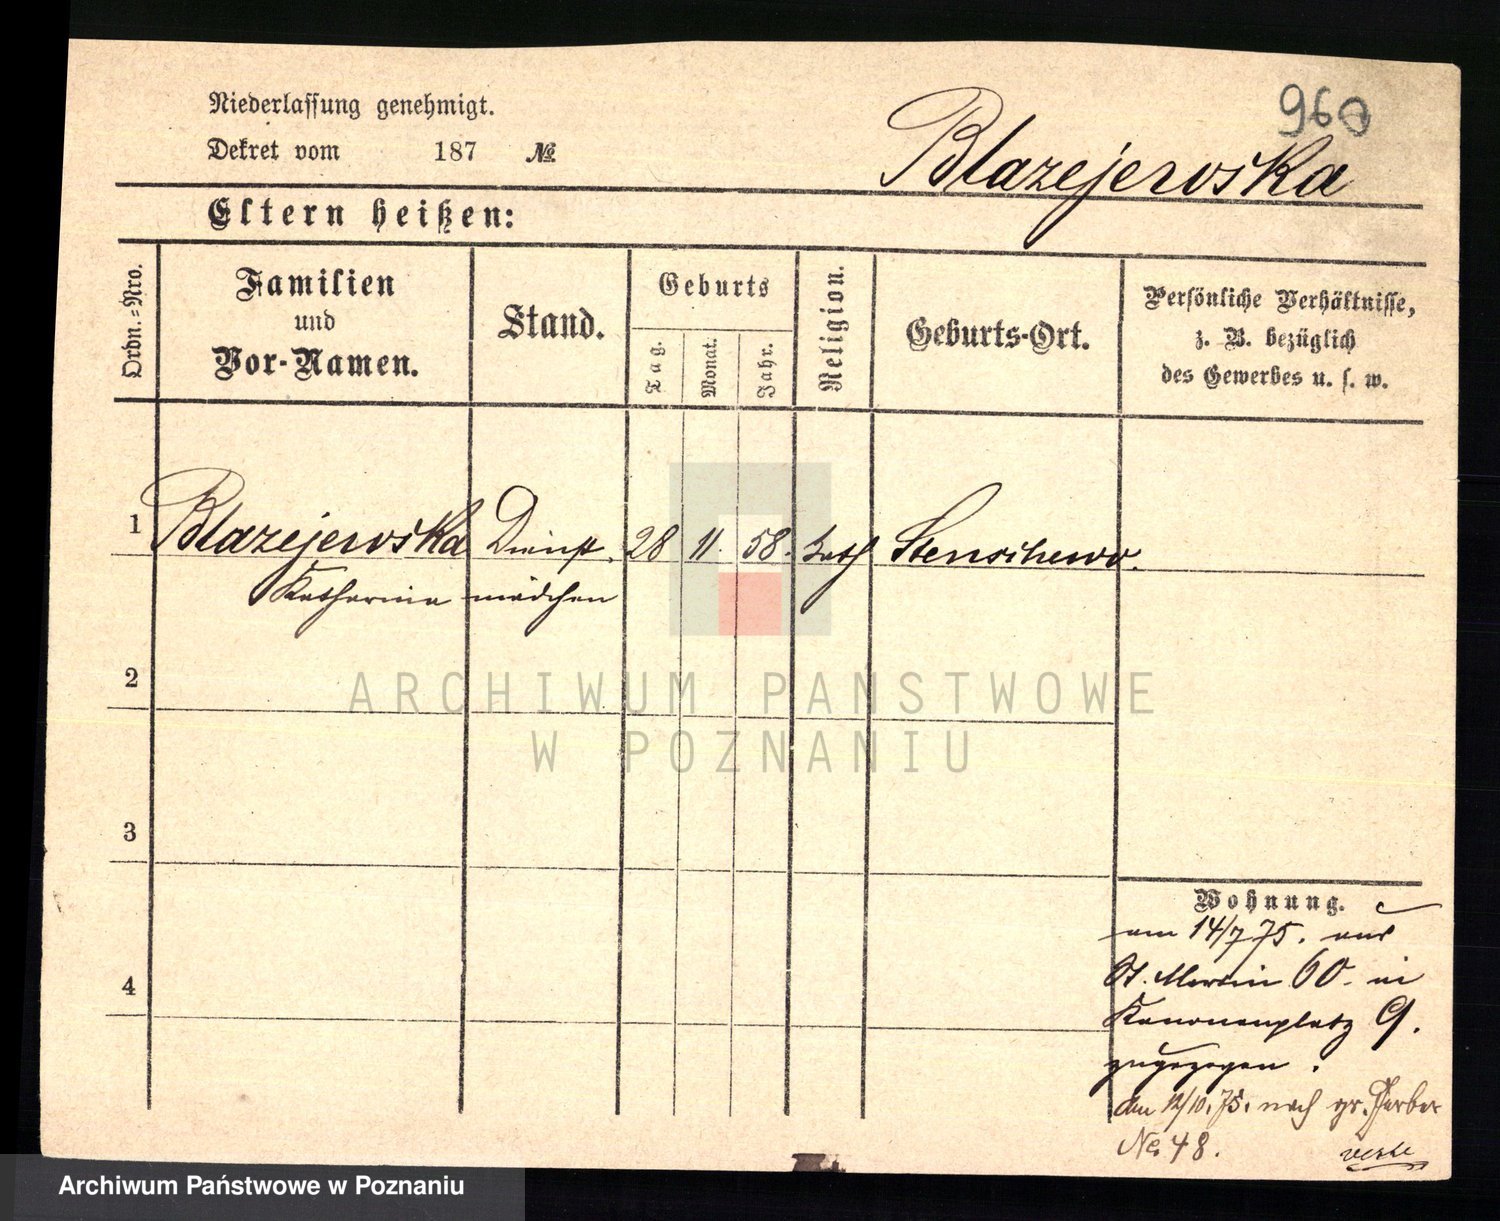 960
Niederlassung genehmigt.
Dekret vom 187 №
Blazejewska
Eltern heißen:
Ordn.=Nro.
Familien
und
Vor-Namen.
Stand.
Geburts
Tag.
Monat.
Jahr.
Religion.
Geburts-Ort.
Persönliche Verhältnisse,
z. B. bezüglich
des Gewerbes u. s. w.
1 Blazejewska Dienst 28 11. 58. kath Stenschewo.
Katharina mädchen
2
3
4
Wohnung.
am 14/7 75. aus
St. Martin 60. in
Kanonenplatz 9.
zugezogen.
den 12/10. 75. nach gr. Gerber
No 48.
ARCHIWUM PAŃSTWOWE
W POZNANIU
Archiwum Państwowe w Poznaniu